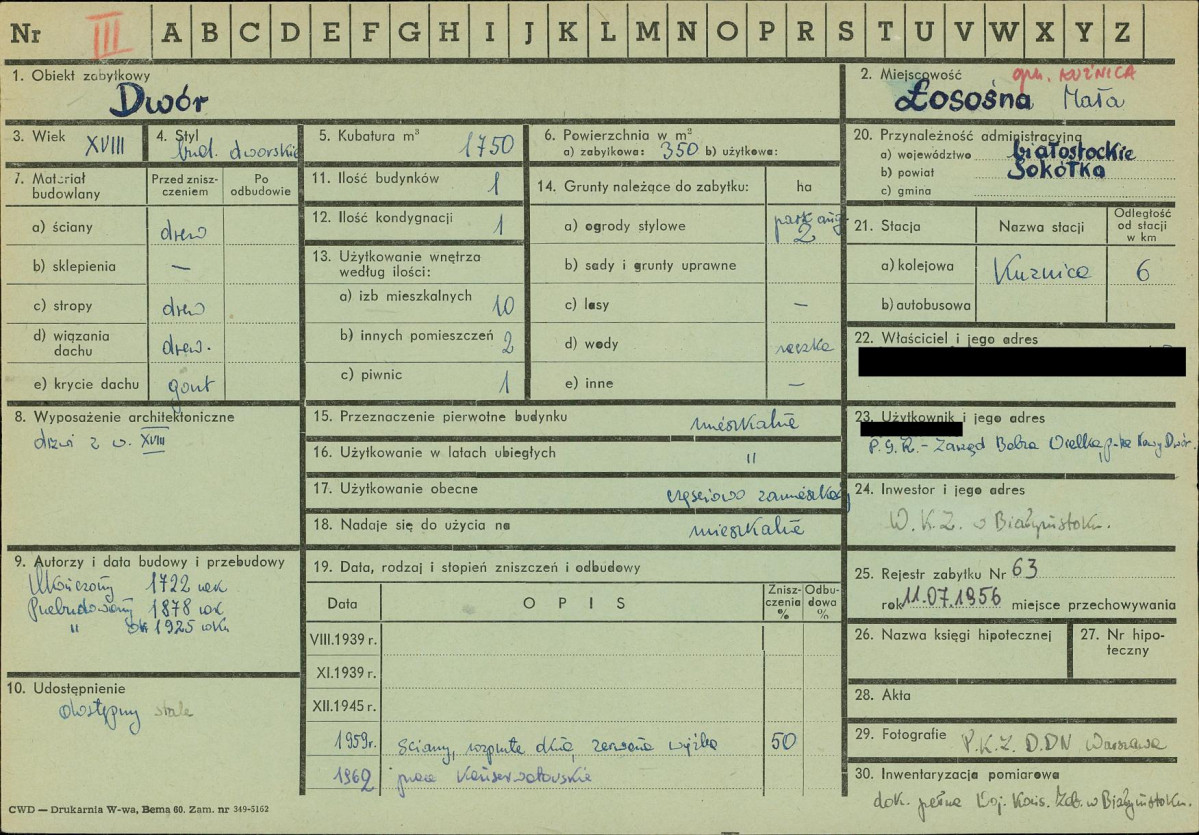 Nr III A B C D E F G H I J K L M N O P R S T U V W X Y Z
1. Obiekt zabytkowy
Dwór
2. Miejscowość
gm. KUŹNICA
Łosośna Mała
3. Wiek XVIII
4. Styl
bud. dworskie
5. Kubatura m³ 1750
6. Powierzchnia w m²
a) zabytkowa: 350 b) użytkowa:
20. Przynależność administracyjna
a) województwo białostockie
b) powiat Sokółka
c) gmina
7. Materiał budowlany
Przed zniszczeniem
Po odbudowie
a) ściany drew
b) sklepienia —
c) stropy drew
d) wiązania dachu drew.
e) krycie dachu gont
11. Ilość budynków 1
12. Ilość kondygnacji 1
13. Użytkowanie wnętrza
według ilości:
a) izb mieszkalnych 10
b) innych pomieszczeń 2
c) piwnic 1
14. Grunty należące do zabytku: ha
a) ogrody stylowe park ang. 2
b) sady i grunty uprawne
c) lasy —
d) wody rzeczka
e) inne —
21. Stacja Nazwa stacji Odległość od stacji w km
a) kolejowa Kuźnica 6
b) autobusowa
22. Właściciel i jego adres
8. Wyposażenie architektoniczne
drzwi z w. XVIII
15. Przeznaczenie pierwotne budynku mieszkalne
16. Użytkowanie w latach ubiegłych "
17. Użytkowanie obecne częściowo zamieszkały
18. Nadaje się do użycia na mieszkalne
23. Użytkownik i jego adres
P.G.R. - Zarząd Bobra Wielka, p-ta Nowy Dwór.
24. Inwestor i jego adres
W.K.Z. w Białymstoku.
9. Autorzy i data budowy i przebudowy
Ukończony 1722 rok
Przebudowany 1878 rok
" ok 1925 roku
19. Data, rodzaj i stopień zniszczeń i odbudowy
Data OPIS Zniszczenia % Odbudowa %
VIII.1939 r.
XI.1939 r.
XII.1945 r.
1959r. Ściany, rozprute dnia, zerwana więźba 50
1962 prace konserwatorskie
25. Rejestr zabytku Nr 63
rok 11.07.1956 miejsce przechowywania
26. Nazwa księgi hipotecznej
27. Nr hipoteczny
10. Udostępnienie
dostępny stale
28. Akta
29. Fotografie P.K.Z. D.DN Warszawa
30. Inwentaryzacja pomiarowa
dok. pełna Woj. Kons. Zab. w Białymstoku.
CWD — Drukarnia W-wa, Bema 60. Zam. nr 349-5162